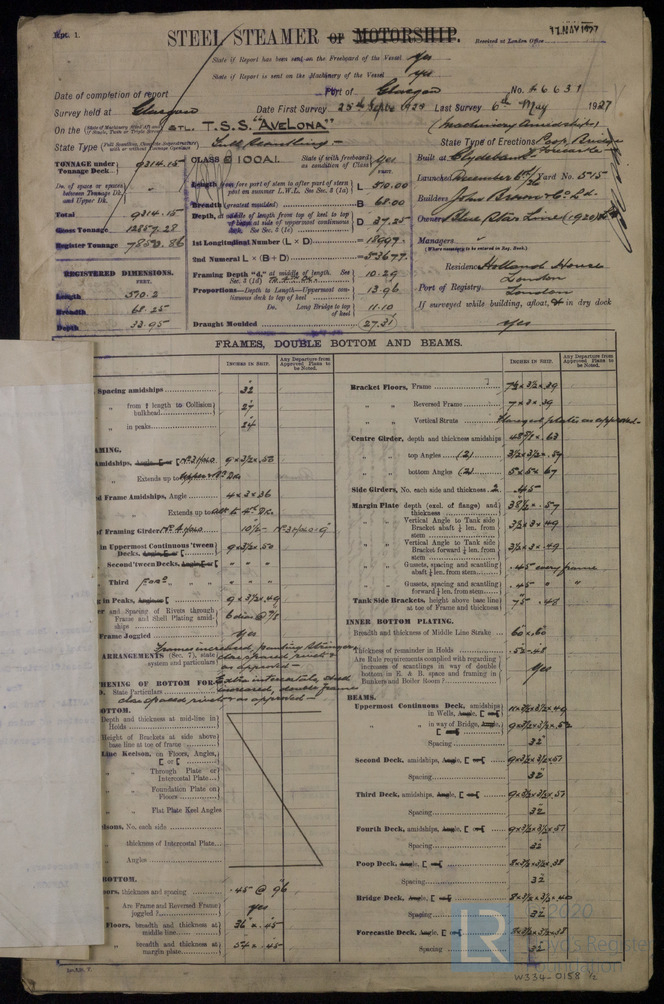 Rpt. 1.
STEEL STEAMER or MOTORSHIP.
Received at London Office
State if Report has been sent on the Freeboard of the Vessel Yes
State if Report is sent on the Machinery of the Vessel Yes
Date of completion of report
Port of Glasgow No. 46631
Survey held at Glasgow Date First Survey 25th Sept 1925 Last Survey 6th May 1927
On the T.S.S. "AVELONA" (Machinery Amidships)
State Type Full Scantling State Type of Erections Poop, Bridge Forecastle
TONNAGE under Tonnage Deck 9314.15
Do. of space or spaces between Tonnage Dk. and Upper Dk.
Total 9314.15
Gross Tonnage 12857.28
Register Tonnage
REGISTERED DIMENSIONS.
FEET.
Length 510.2
Breadth 68.25
Depth 33.95
CLASS 100A1. State if with freeboard as condition of Class Yes
Length from fore part of stem to after part of stern post on summer L.W.L. See Sec. 3 (1a) L 510.00
Breadth (greatest moulded) B 68.00
Depth, at middle of length from top of keel to top of beam at side of uppermost continuous deck. See Sec. 3 (1c) D 37.25
1st Longitudinal Number (L × D)
2nd Numeral L × (B + D) 53677
Framing Depth "d," at middle of length. See Sec. 3 (1d) 10.29
Proportions—Depth to Length—Uppermost continuous deck to top of keel 13.96
Do. Long Bridge to top of keel 11.10
Draught Moulded 27.31
Built at Clydebank
Launched December 6th /26 Yard No. 515
Builders John Brown & Co. Ld.
Owners Blue Star Line (1920) Ld
Managers
(Where necessary to be entered in Reg. Book.)
Residence Holland House London
Port of Registry London
If surveyed while building, afloat, or in dry dock
Yes
FRAMES, DOUBLE BOTTOM AND BEAMS.
INCHES IN SHIP. Any Departure from Approved Plans to be Noted.
INCHES IN SHIP. Any Departure from Approved Plans to be Noted.
Spacing amidships 32
from length to Collision bulkhead 27
in peaks 24
AMING.
Amidships, Angle, [ or [
Extends up to
d Frame Amidships, Angle 4 x 3 x 36
Extends up to
of Framing Girder
in Uppermost Continuous 'tween Decks, Angle, [ or [ 9 x 3½ x .50
Second 'tween Decks, Angle, [ or [
Third
g in Peaks, Angle or [ 9 x 3½ x .49
er and Spacing of Rivets through Frame and Shell Plating amidships 6 dias @ 7/8
Frame Joggled Yes
ARRANGEMENTS (Sec. 7), state system and particulars Frames increased, panting stringers close spaced rivets & as approved —
HENING OF BOTTOM FOR State Particulars Extra intercostals, shell increased, double frames close spaced rivets as approved —
OTTOM.
Depth and thickness at mid-line in Holds
Height of Brackets at side above base line at toe of frame
Line Keelson, on Floors, Angles, [ or [
Through Plate or Intercostal Plate
Foundation Plate on Floors
Flat Plate Keel Angles
dsons, No. each side
thickness of Intercostal Plate
Angles
BOTTOM.
oors, thickness and spacing .45 @ 96
Are Frame and Reversed Frame joggled? Yes
Floors, breadth and thickness at middle line 36 x .45
breadth and thickness at margin plate 54 x .45
Bracket Floors, Frame 7½ x 3½ x .39
Reversed Frame 7 x 3 x .39
Vertical Struts Flanged plates as approved
Centre Girder, depth and thickness amidships
top Angles (2)
bottom Angles (2) 5 x 5 x .67
Side Girders, No. each side and thickness 2 .45
Margin Plate depth (excl. of flange) and thickness 38½ x .57
Vertical Angle to Tank side Bracket abaft ¼ len. from stem 3½ x 3 x .49
Vertical Angle to Tank side Bracket forward ¼ len. from stem 3½ x 3 x .49
Gussets, spacing and scantling abaft ¼ len. from stem .45 every frame
Gussets, spacing and scantling forward ¼ len. from stem .45 " "
Tank Side Brackets, height above base line at toe of Frame and thickness 75 .48
INNER BOTTOM PLATING.
Breadth and thickness of Middle Line Strake 60 x .60
Thickness of remainder in Holds .52 - .48
Are Rule requirements complied with regarding increase of scantlings in way of double bottom in E. & B. space and framing in Bunkers and Boiler Room? Yes
BEAMS.
Uppermost Continuous Deck, amidships in Wells, Angle, [ or [ 11 x 3½ x 3½ x .49
in way of Bridge, Angle, [ or [ 9 x 3½ x 3½ x .52
Spacing 32
Second Deck, amidships, Angle, [ or [ 9 x 3½ x 3½ x .51
Spacing 32
Third Deck, amidships, Angle, [ or [ 9 x 3½ x 3½ x .51
Spacing 32
Fourth Deck, amidships, Angle, [ or [ 9 x 3½ x 3½ x .51
Spacing 32
Poop Deck, Angle, [ or [ 8 x 3½ x 3½ x .38
Spacing 32
Bridge Deck, Angle, [ or [ 8 x 3½ x 3½ x .40
Spacing 32
Forecastle Deck, Angle, [ or [ 8 x 3½ x 3½ x .38
Spacing 32
LR
© 2020
Lloyd's Register
Foundation
W334-0158 ½